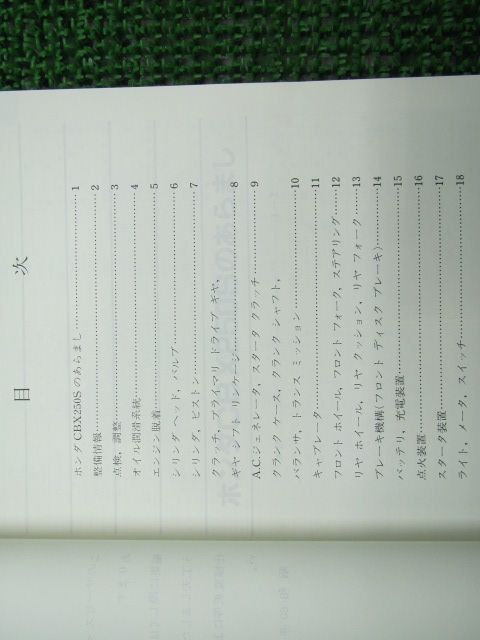 目 次
ホンダ CBX250S のあらまし 1
整備情報 2
点検、調整 3
オイル潤滑系統 4
エンジン脱着 5
シリンダ ヘッド、バルブ 6
シリンダ、ピストン 7
クラッチ、プライマリ ドライブ ギヤ、
ギヤ シフト リンケージ 8
A.C.ジェネレータ、スタータ クラッチ 9
クランク ケース、クランク シャフト、
バランサ、トランス ミッション 10
キャブレータ 11
フロント ホイール、フロント フォーク、ステアリング 12
リヤ ホイール、リヤ クッション、リヤ フォーク 13
ブレーキ機構(フロント ディスク ブレーキ) 14
バッテリ、充電装置 15
点火装置 16
スタータ装置 17
ライト、メータ、スイッチ 18